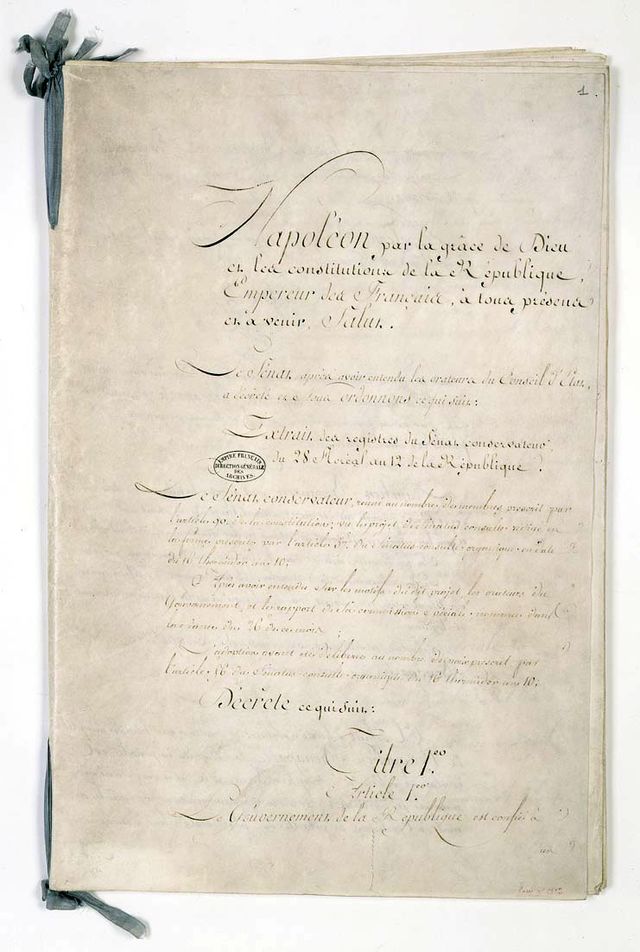 1
Napoléon par la grâce de Dieu
et les constitutions de la République,
Empereur des Français, à tous présens
et à venir, Salut.
Le Sénat, après avoir entendu les orateurs du Conseil d'État,
a décrété et nous ordonnons ce qui suit:
Extrait des registres du Sénat conservateur
du 28 floréal an 12 de la République.
EMPIRE FRANÇAIS
DIRECTION GÉNÉRALE
DES
ARCHIVES
Le Sénat conservateur, réuni au nombre de membres prescrit par
l'article 90 de la constitution; vu le projet de sénatus-consulte rédigé en
la forme prescrite par l'article 57 du sénatus-consulte organique en date
du 16 thermidor an 10;
Après avoir entendu sur les motifs dudit projet, les orateurs du
Gouvernement, et le rapport de sa commission spéciale nommée dans
la séance du 26 de ce mois;
L'adoption ayant été délibérée au nombre de voix prescrit par
l'article 56 du sénatus-consulte organique du 16 thermidor an 10;
Décrète ce qui suit:
Titre 1.er
Article 1.er
Le Gouvernement de la République est confié à
un